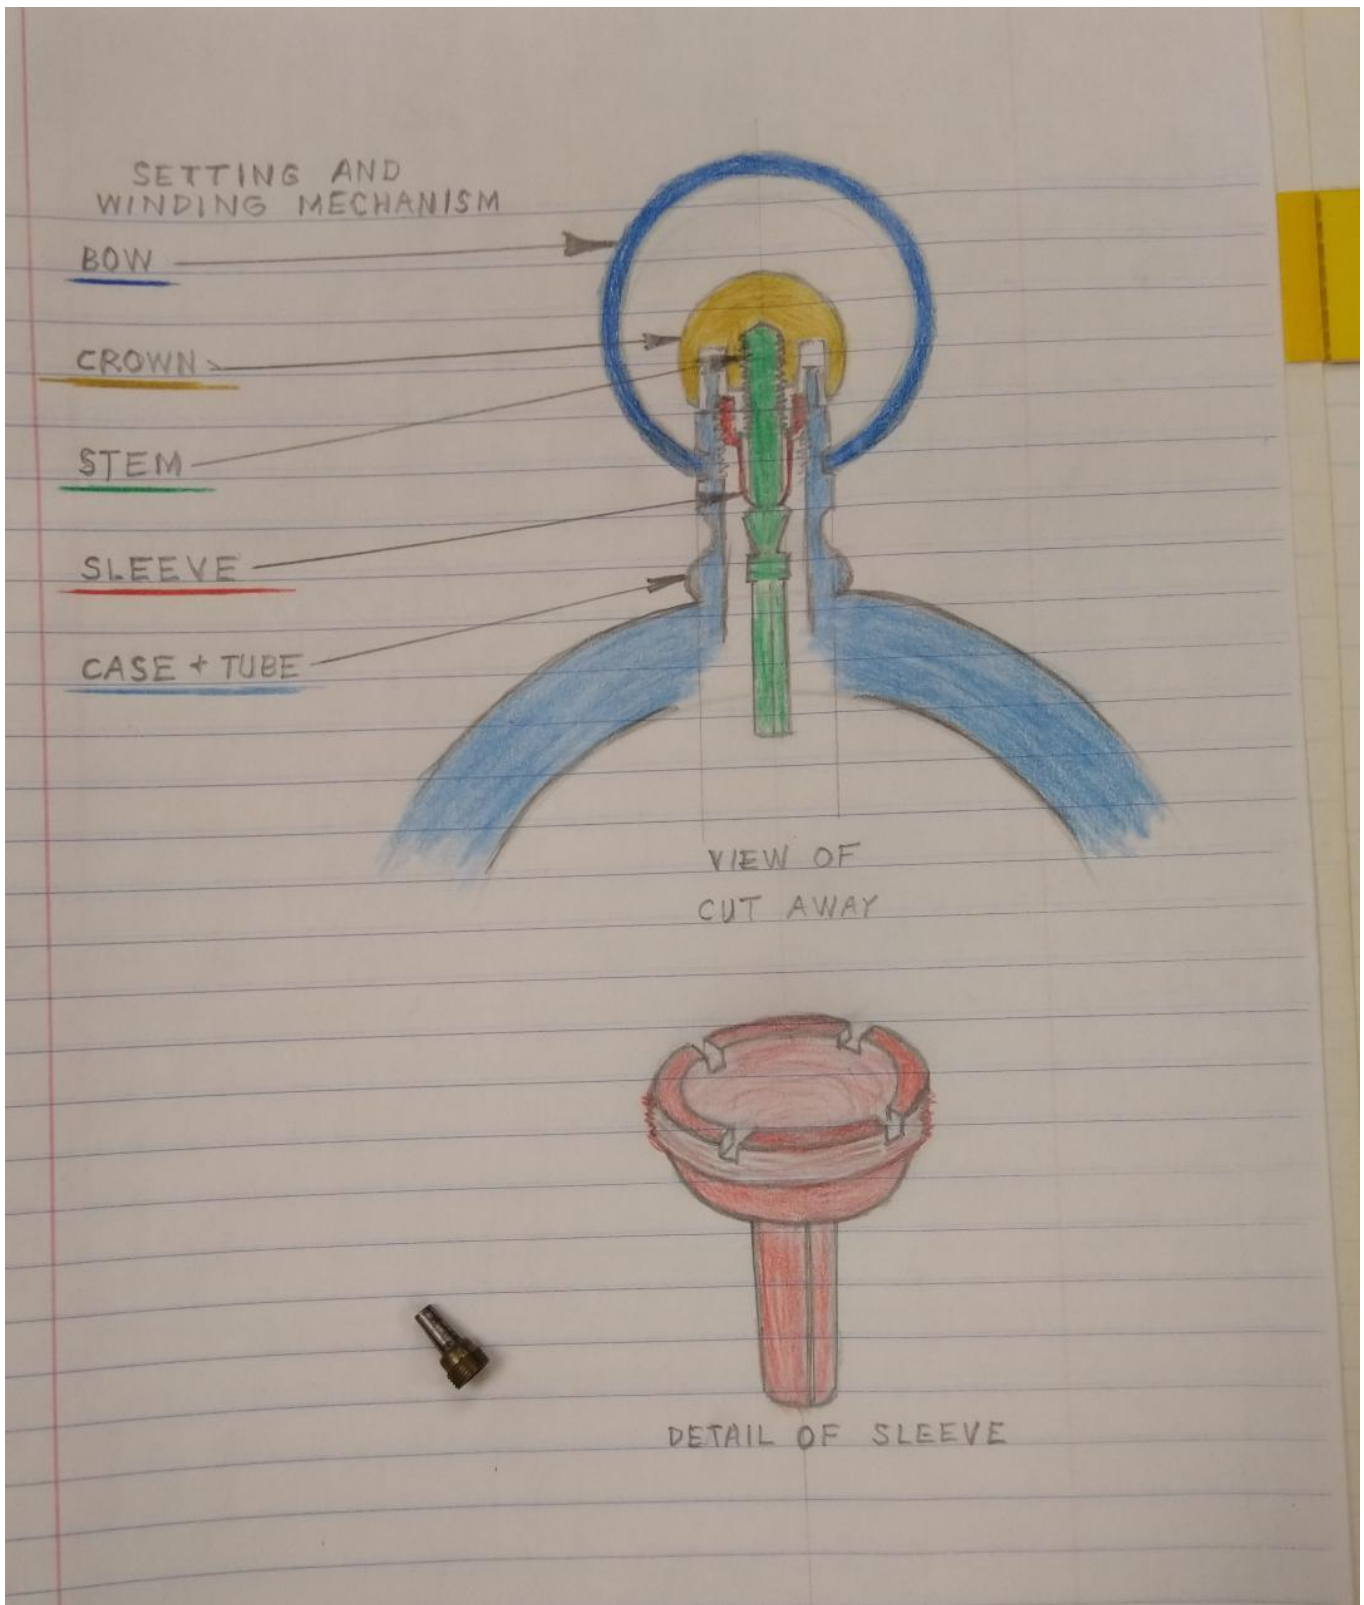 SETTING AND
WINDING MECHANISM
BOW
CROWN
STEM
SLEEVE
CASE + TUBE
VIEW OF
CUT AWAY
DETAIL OF SLEEVE